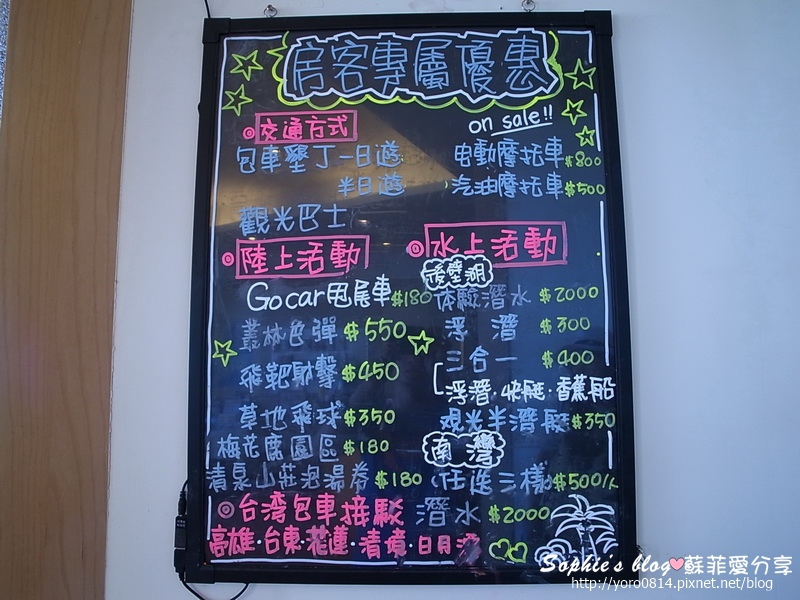 房客專屬優惠
on sale!!
◎交通方式
包車墾丁一日遊
半日遊
觀光巴士
电動摩托車$800
汽油摩托車$500
◎陸上活動
Gocar甩尾車$180
叢林色彈 $550
飛靶射擊 $450
草地飛球 $350
梅花鹿園區 $180
清泉山莊泡湯券 $180
◎水上活動
後壁湖
体驗潛水 $2000
浮潛 $300
三合一 $400
浮潛·快艇·香蕉船
观光半潛艇$350
南灣
(任选三樣)$500/人
潛水 $2000
◎台湾包車接駁
高雄·台東·花蓮·清境·日月潭
Sophie's blog♥蘇菲愛分享
http://yoro0814.pixnet.net/blog